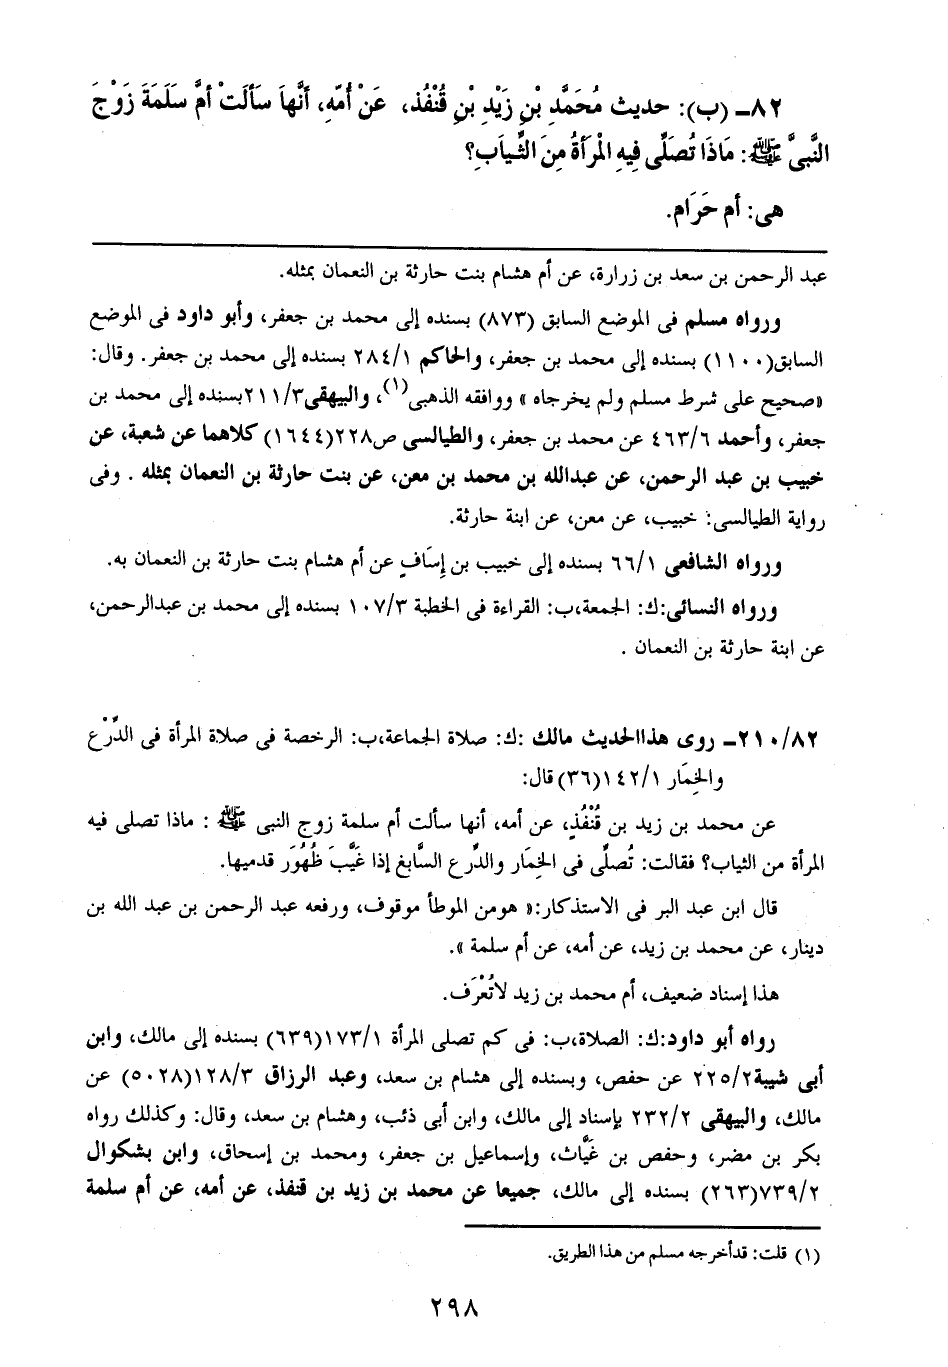 ٨٢ـ (ب): حديث مُحَمَّدِ بْنِ زَيْدِ بْنِ قُنْفُذ، عَنْ أُمِّهِ، أَنَّهاَ سَأَلَتْ أمَّ سَلَمَةَ زَوْجَ
النَّبِىَّ ﷺ: مَاذَا تُصَلِّى فِيهِ الْمَرْأَةُ مِنَ الثِّيَابِ؟
هى: أم حَرَام.
عبد الرحمن بن سعد بن زرارة، عن أم هشام بنت حارثة بن النعمان بمثله.
ورواه مسلم فى الموضع السابق (٨٧٣) بسنده إلى محمد بن جعفر، وأبو داود فى الموضع
السابق(١١٠٠) بسنده إلى محمد بن جعفر، والحاكم ٢٨٤/١ بسنده إلى محمد بن جعفر. وقال:
«صحيح على شرط مسلم ولم يخرجاه» ووافقه الذهبى(١)، والبيهقى٢١١/٣بسنده إلى محمد بن
جعفر، وأحمد ٤٦٣/٦ عن محمد بن جعفر، والطيالسى ص٢٢٨(١٦٤٤) كلاهما عن شعبة، عن
خبيب بن عبد الرحمن، عن عبدالله بن محمد بن معن، عن بنت حارثة بن النعمان بمثله . وفى
رواية الطيالسى: خبيب، عن معن، عن ابنة حارثة.
ورواه الشافعى ٦٦/١ بسنده إلى خبيب بن إسَافٍ عن أم هشام بنت حارثة بن النعمان به.
ورواه النسائى:ك: الجمعة،ب: القراءة فى الخطبة ١٠٧/٣ بسنده إلى محمد بن عبدالرحمن،
عن ابنة حارثة بن النعمان .
٢١٠/٨٢ـ روى هذاالحديث مالك :ك: صلاة الجماعة،ب: الرخصة فى صلاة المرأة فى الدِّرْع
والخِمَار ١٤٢/١(٣٦)قال:
عن محمد بن زيد بن قُنْفُذٍ، عن أمه، أنها سألت أم سلمة زوج النبى ﷺ : ماذا تصلى فيه
المرأة من الثياب؟ فقالت: تُصلِّى فى الخِمَار والدِّرع السَّابغ إذا غَيَّبَ ظُهُورَ قدميها.
قال ابن عبد البر فى الاستذكار:« هومن الموطأ موقوف، ورفعه عبد الرحمن بن عبد الله بن
دينار، عن محمد بن زيد، عن أمه، عن أم سلمة ».
هذا إسناد ضعيف، أم محمد بن زيد لاتُعْرَف.
رواه أبو داود:ك: الصلاة،ب: فى كم تصلى المرأة ١٧٣/١(٦٣٩) بسنده إلى مالك، وابن
أبى شيبة٢٢٥/٢ عن حفص، وبسنده إلى هشام بن سعد، وعبد الرزاق ١٢٨/٣(٥٠٢٨) عن
مالك، والبيهقى ٢٣٢/٢ بإسناد إلى مالك، وابن أبى ذئب، وهشام بن سعد، وقال: وكذلك رواه
بكر بن مضر، وحفص بن غَيَّاث، وإسماعيل بن جعفر، ومحمد بن إسحاق، وابن بشكوال
٧٣٩/٢(٢٦٣) بسنده إلى مالك، جميعا عن محمد بن زيد بن قنفذ، عن أمه، عن أم سلمة
(١) قلت: قدأخرجه مسلم من هذا الطريق.
٢٩٨